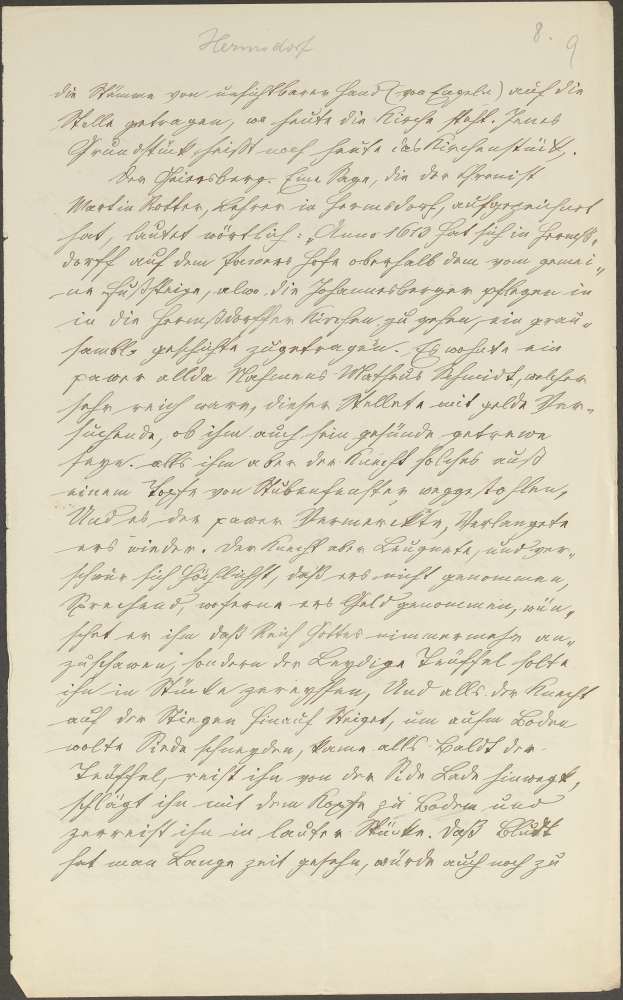 Hermsdorf
8. 9
die Stämme von unsichtbarer Hand (von Engeln) auf die
Stelle getragen, wo heute die Kirche steht. Jenes
Grundstück heißt noch heute das Kirchenstück.
Der Geiersberg. Eine Sage, die der Chronist
Martin Rotter, Lehrer in Hermsdorf, aufgezeichnet
hat, lautet wörtlich: „Anno 1610 hat sich in Hermß-
dorff auf dem Pawers Hofe oberhalb dem vom gemei-
ne Fußsteige, alwo die Johannesberger pflegen in
in die Hermßdorffer Kirchen zu gehen, ein grau-
samble geschichte zugetragen. Es wohnte ein
pawer allda Nahmens Matheus Schmidt, welcher
sehr reich ware, dieser stellete mit gelde Ver-
suchende, ob ihm auch sein gesünde getrewe
seye. alls ihm aber der Knecht solches auß
einem Topfe vom Stubenfenster weggestohlen,
Und es der pawer Vermerckte, Verlangete
ers wieder. Der Knecht aber Leugnete, und ver-
schwur sich höchlichst, daß ers nicht genommen,
Sprechend, woferne ers Geld genommen, wün-
schet er ihm daß Reich Gottes nimmermehr an-
zuschawen, sondern der Leydige Teüffel solte
ihn in Stücke zereyssen, Und alls der Knecht
auf der Stiegen hinauf steiget, um aufm Boden
wolte Siede schneyden, kame alls baldt der
Teüffel, reist ihn von der Side Lade hinwegk,
schlägt ihn mit dem Kopfe zu Boden und
zerreist ihn in lauter Stücke. Daß Bludt
hat man Lange zeit gesehn, würde auch noch zu